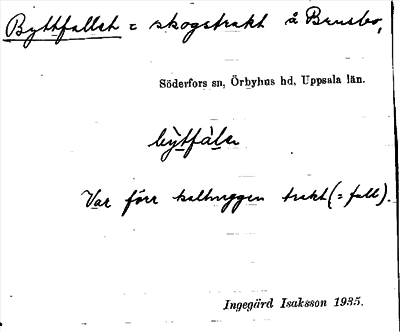 Byttfallet = skogstrakt å Brusbo,
Söderfors sn, Örbyhus hd, Uppsala län.
by̆tfàlẹ
Var förr kalhuggen trakt (= fall).
Ingegärd Isaksson 1935.